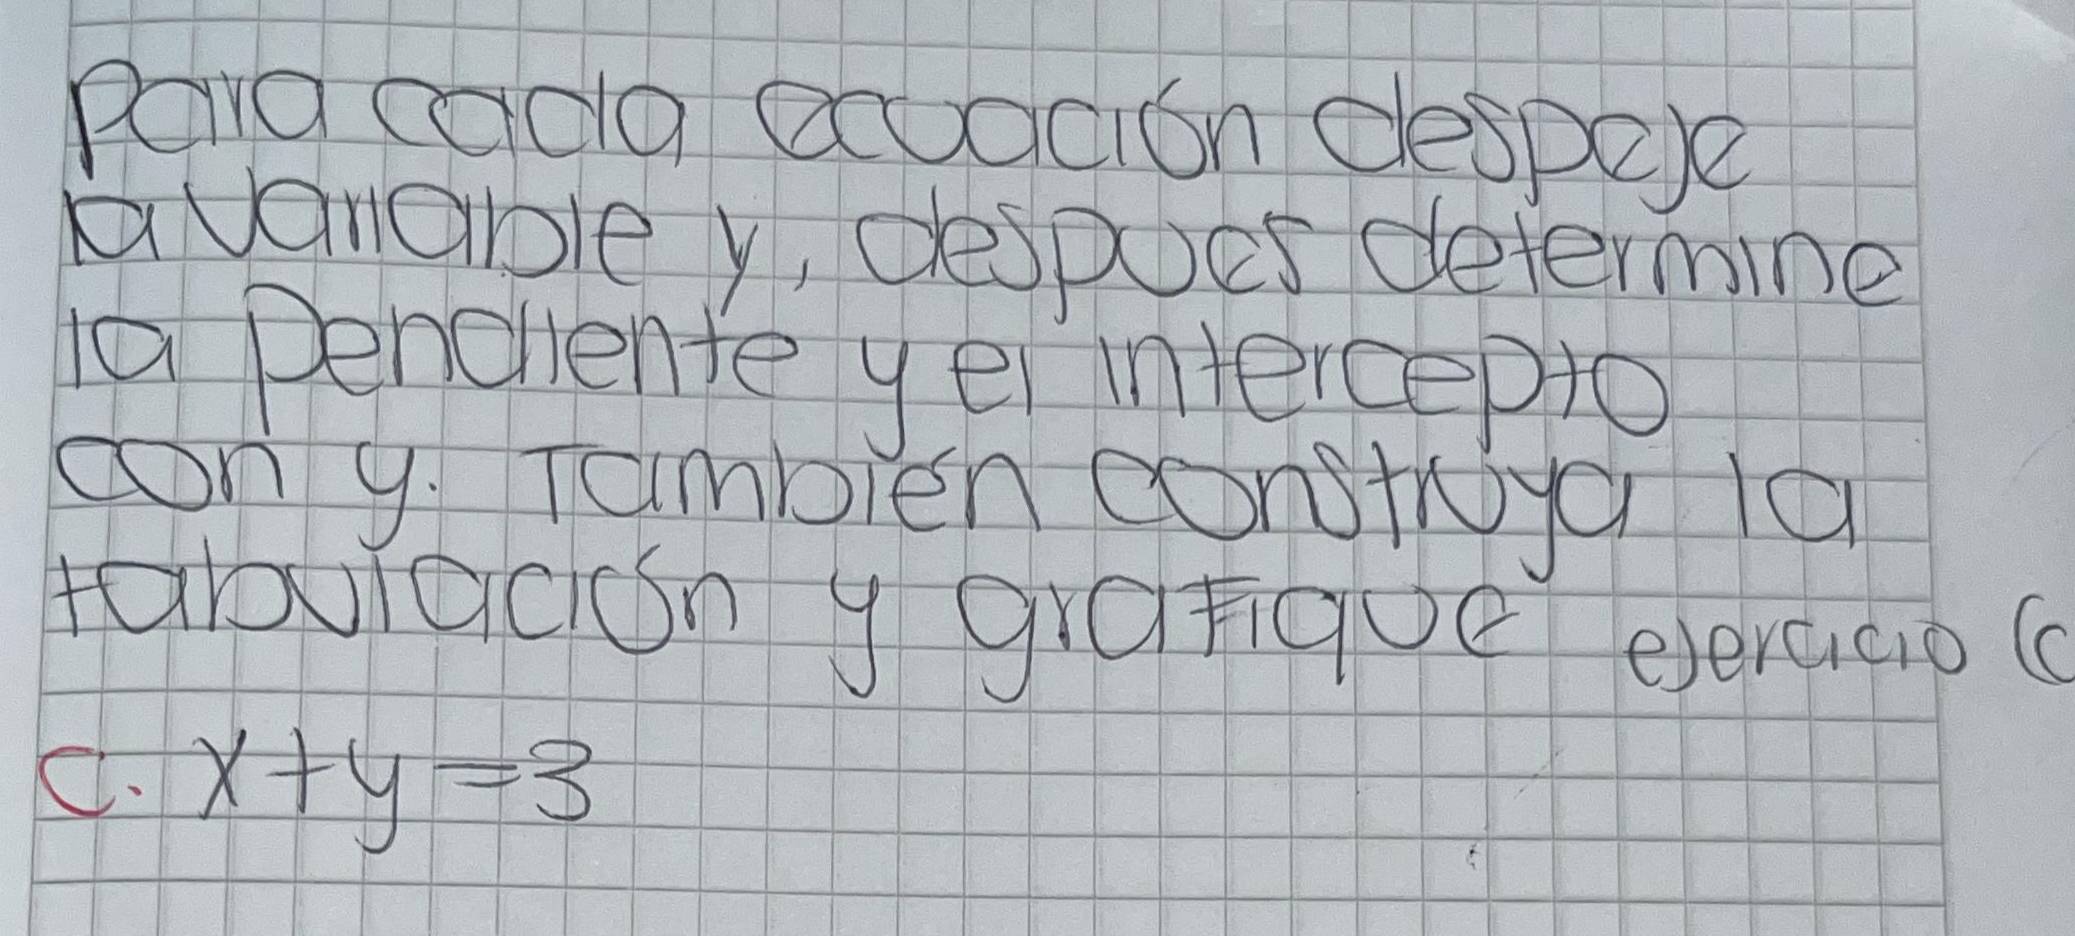 Para cada ecuación despeje
la variable y, despues determine
la Pendiente y el intercepto
con y. También construya la
tabulación y grafique ejercicio (c
C. x+y=3